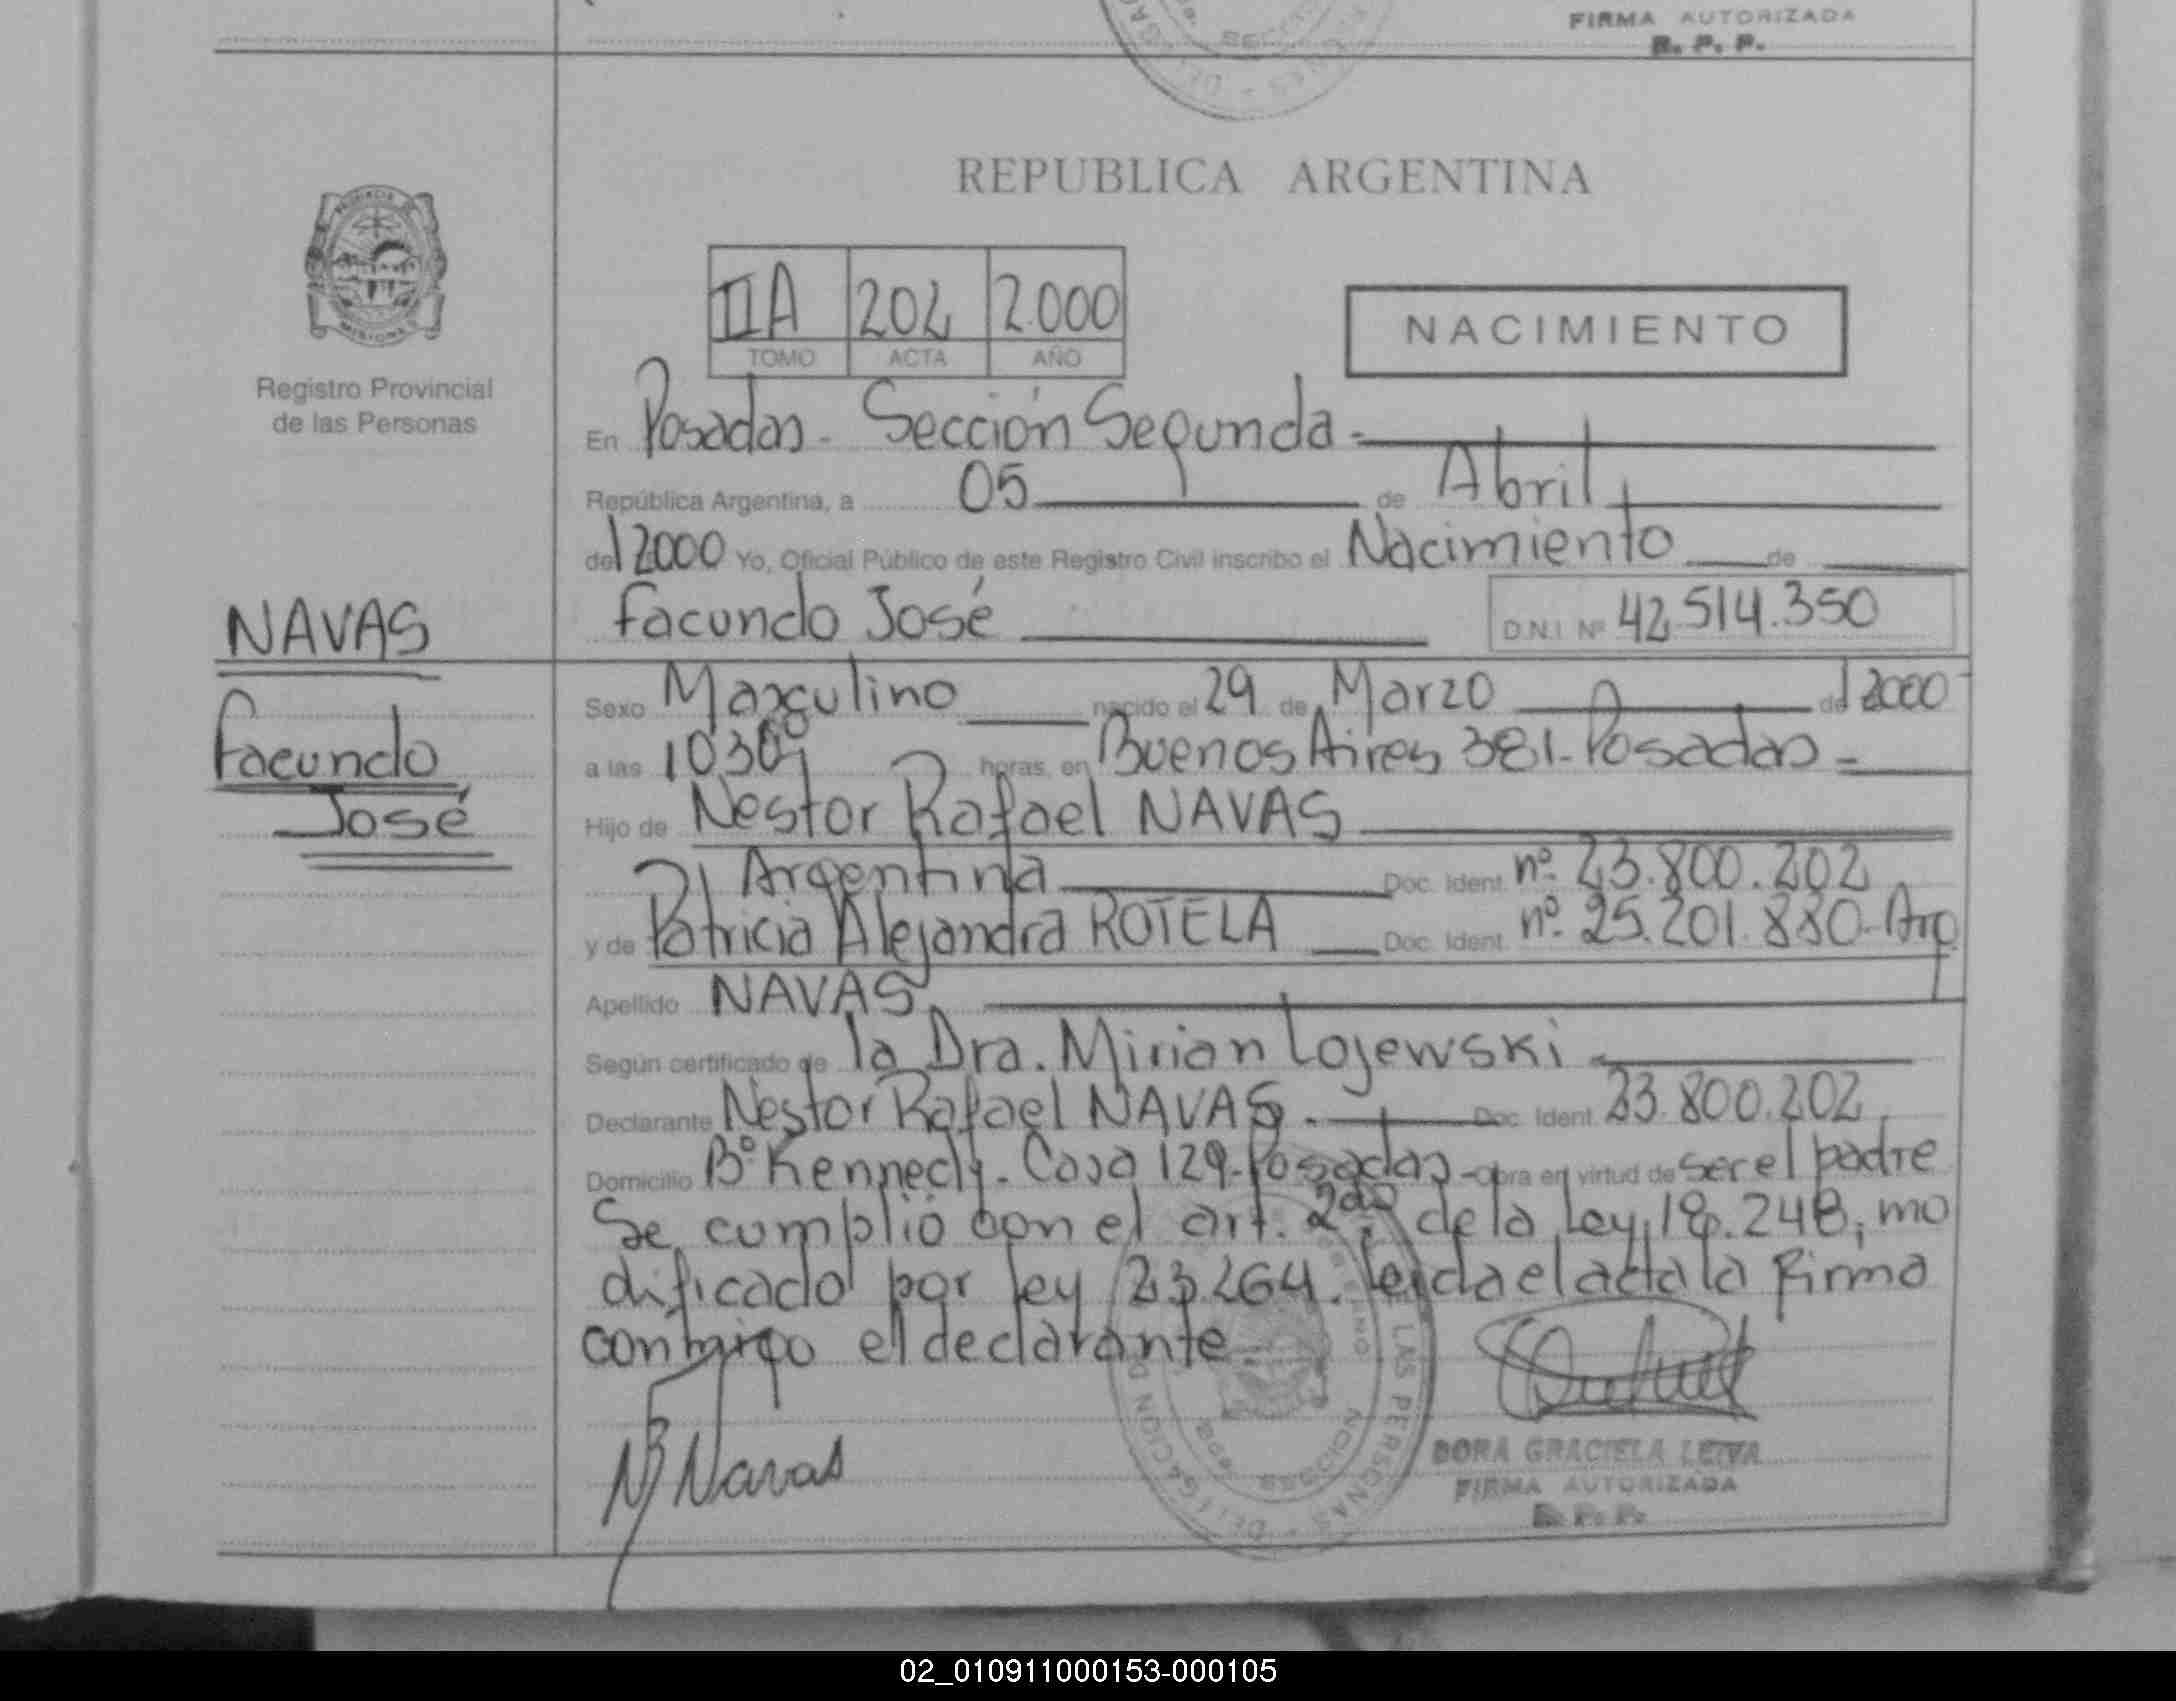 FIRMA AUTORIZADA
R. P. P.
REPUBLICA ARGENTINA
IIA 202 2.000
TOMO ACTA AÑO
NACIMIENTO
Registro Provincial
de las Personas
En Posadas - Sección Segunda -
República Argentina, a 05 de Abril
del 2000 Yo, Oficial Público de este Registro Civil inscribo el Nacimiento de
Facundo José D.N.I. Nº 42.514.350
NAVAS
Facundo
José
Sexo Masculino nacido el 29 de Marzo del 2000
a las 10.30 horas, en Buenos Aires 381-Posadas -
Hijo de Nestor Rafael NAVAS
Argentina Doc. Ident. nº 23.800.202
y de Patricia Alejandra ROTELA Doc. Ident. nº 25.201.880-Arg
Apellido NAVAS
Según certificado de la Dra. Mirian Lojewski
Declarante Nestor Rafael NAVAS. Doc. Ident. 23.800.202
Domicilio Bº Kennedy. Casa 129-Posadas - Obra en virtud de ser el padre
Se cumplió con el art. 2do, de la Ley 18.248, mo
dificado por Ley 23.264. Leida el acta la firma
conmigo el declarante
N Navas
DORA GRACIELA LEIVA
FIRMA AUTORIZADA
R. P. P.
02_010911000153-000105